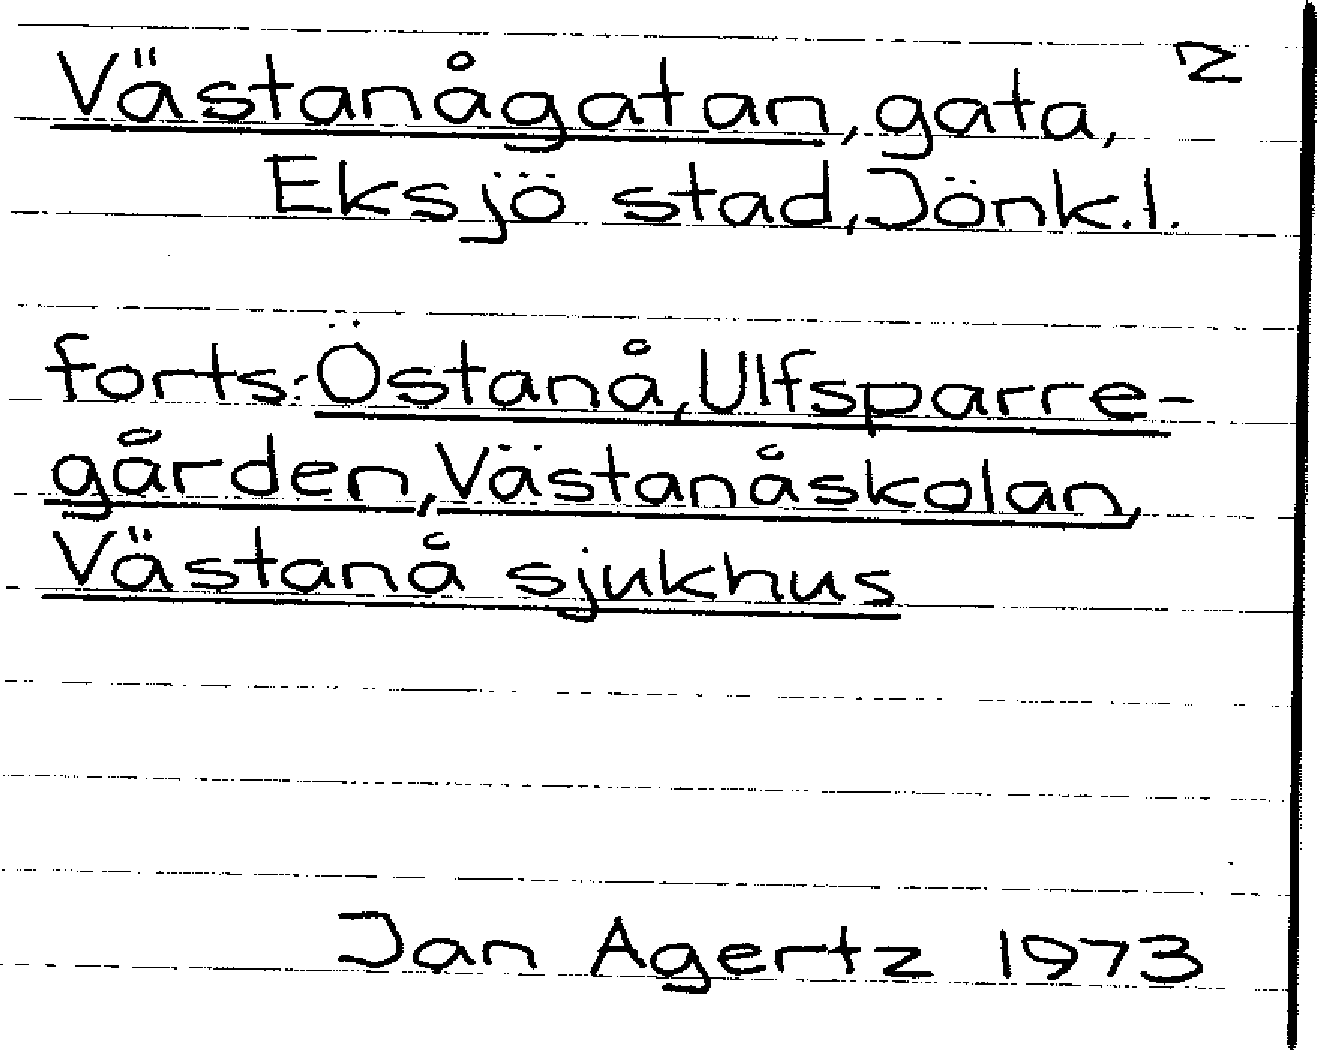 Västanågatan, gata, 2
Eksjö stad, Jönk.l.
forts: Östanå, Ulfsparre-
gården, Västanåskolan,
Västanå sjukhus
Jan Agertz 1973